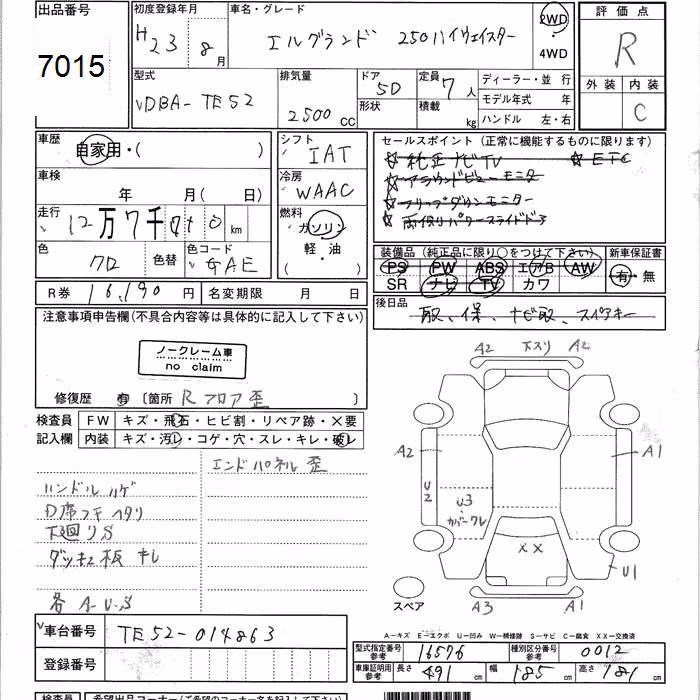 出品番号 初度登録年月 車名・グレード 2WD 評価点
7015 H23 8月 エルグランド 250ハイウェイスター 4WD R
型式 排気量 ドア 定員 ディーラー・並行 外装 内装
DBA-TE52 2500CC 5D 7人 モデル年式 年 C
形状 積載 kg ハンドル 左・右
車歴 シフト セールスポイント (正常に機能するものに限ります)
自家用・( ) IAT ☆純正ナビTV ☆ETC
車検 冷房 ☆アラウンドビューモニター
年 月( 日) WAAC ☆フリップダウンモニター
走行 燃料 ☆両側パワースライドドア
12万7千 km ガソリン
軽・油
色 色替 色コード 装備品 (純正品に限り○をつけて下さい) 新車保証書
クロ GAE PS PW ABS エアB AW 有・無
SR ナビ TV カワ
R券 16,190円 名変期限 月 日 後日品
取、保、ナビ取、スペアキー
注意事項申告欄(不具合内容等は具体的に記入して下さい)
ノークレーム車
no claim
修復歴 有 〔箇所 Rフロア歪 〕
検査員 FW キズ・飛石・ヒビ割・リペア跡・X要
記入欄 内装 キズ・汚レ・コゲ・穴・スレ・キレ・破レ
エンドパネル歪
ハンドルハゲ
D席フチヘタリ
下廻りS
ダッキュ板キレ
各A・U・S
A2 下スリ A2
A2 A1
U2
U3
カバーワレ
XX
U1
スペア A3 A1
A-キズ E-エクボ U-凹み W-補修跡 S-サビ C-腐食 XX-交換済
車台番号 TE52-014863
登録番号
型式指定番号参考 16576 種類区分番号参考 0012
車庫証明用参考 長さ 491cm 幅 185cm 高さ 181cm
検査員 希望出品コーナー(ご希望のコーナー名を記入して下さい)